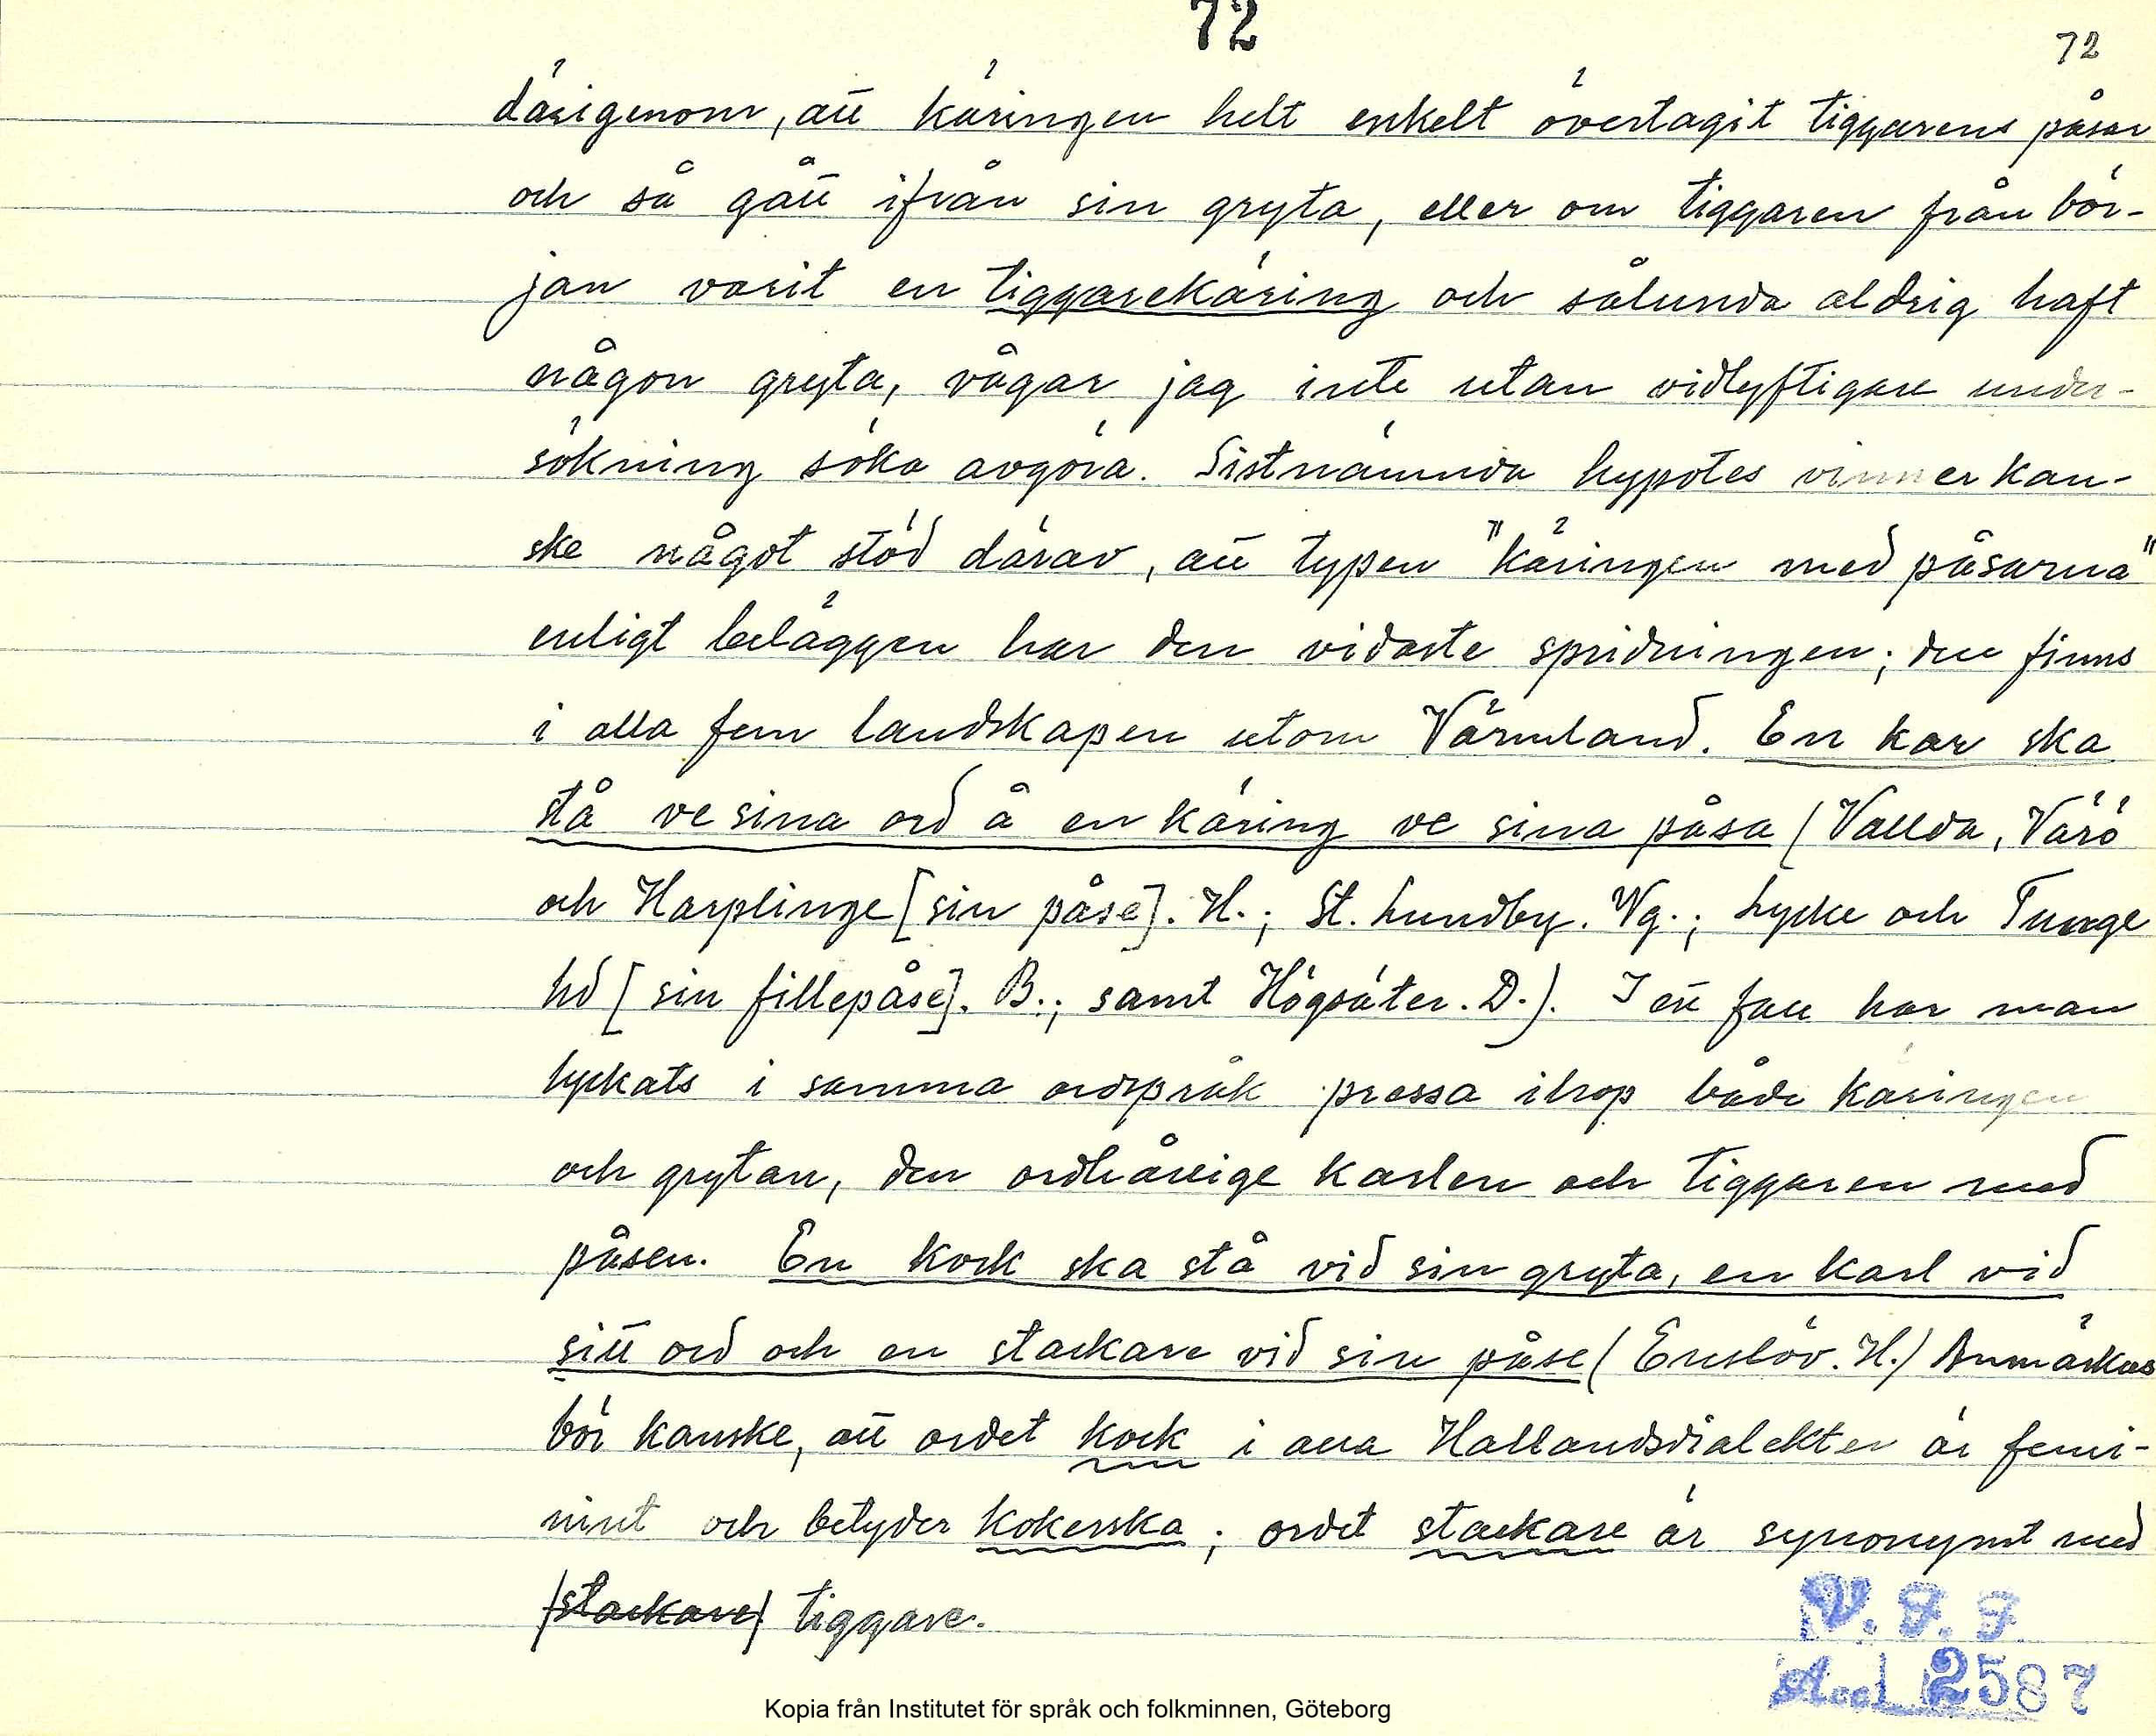 72
72
därigenom, att käringen helt enkelt övertagit tiggarens påsar
och så gått ifrån sin gryta, eller om tiggaren från bör-
jan varit en tiggarekäring och sålunda aldrig haft
någon gryta, vågar jag inte utan vidlyftigare under-
sökning söka avgöra. Sistnämnda hypotes vinner kan-
ske något stöd därav, att typen "käringen med påsarna"
enligt beläggen har den vidaste spridningen; den finns
i alla fem landskapen utom Värmland. En kar ska
stå ve sina ord å en käring ve sina påsa (Vallda, Värö
och Harplinge [sin påse]. H.; St. Lundby. Vg.; Lycke och Tunge
hd [sin fillepåse]. B.; samt Högsäter. D.). I ett fall har man
lyckats i samma ordspråk pressa ihop både käringen
och grytan, den ordhållige karlen och tiggaren med
påsen. En kock ska stå vid sin gryta, en karl vid
sitt ord och en stackare vid sin påse (Enslöv. H.) Anmärkas
bör kanske, att ordet kock i alla Hallandsdialekter är femi-
nint och betyder kokerska; ordet stackare är synonymt med
(stackare) tiggare.
V. F. F.
Acc. 2587
Kopia från Institutet för språk och folkminnen, Göteborg